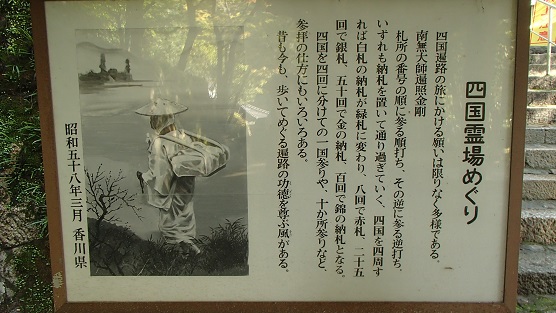 四国霊場めぐり
四国遍路の旅にかける願いは限りなく多様である。
南無大師遍照金剛
札所の番号の順に参る順打ち、その逆に参る逆打ち、
いずれも納札を置いて通り過ぎていく、四国を四周す
れば白札の納札が緑札に変わり、八回で赤札、二十五
回で銀札、五十回で金の納札、百回で錦の納札となる。
四国を四回に分けての一国参りや、十か所参りなど、
参拝の仕方にもいろいろある。
昔も今も、歩いてめぐる遍路の功徳を尊ぶ風がある。
昭和五十八年三月 香川県